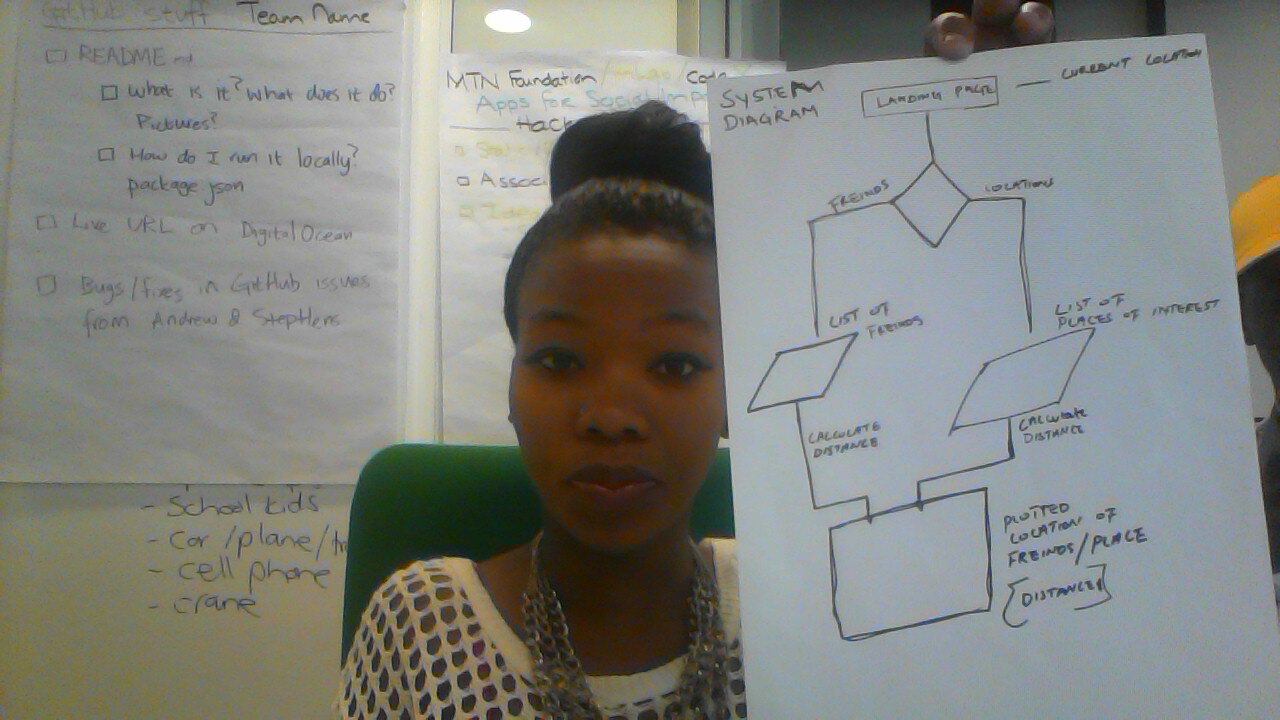 GitHub Stuff Team Name
README.md
What is it? What does it do?
Pictures?
How do I run it locally?
package.json
Live URL on Digital Ocean
Bugs/fixes in GitHub issues
from Andrew &
- School kids
- Car /plane/
- cell phone
- crane
MTN Foundation/
Apps for Social
Hack
Assoc
SYSTEM
DIAGRAM
LANDING PAGE
CURRENT LOCATION
FREINDS
LOCATIONS
LIST OF
FREINDS
LIST OF
PLACES OF INTEREST
CALCULATE
DISTANCE
CALCULATE
DISTANCE
PLOTTED
LOCATION OF
FREINDS/PLACE
[DISTANCE]